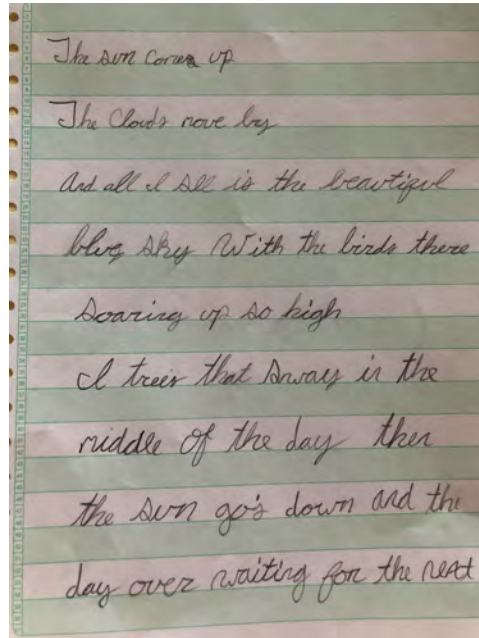 The sun comes up
The Clouds move by
And all I see is the beautiful
blue sky With the birds there
soaring up so high
I trees that sway in the
middle of the day then
the sun go's down and the
day over waiting for the next